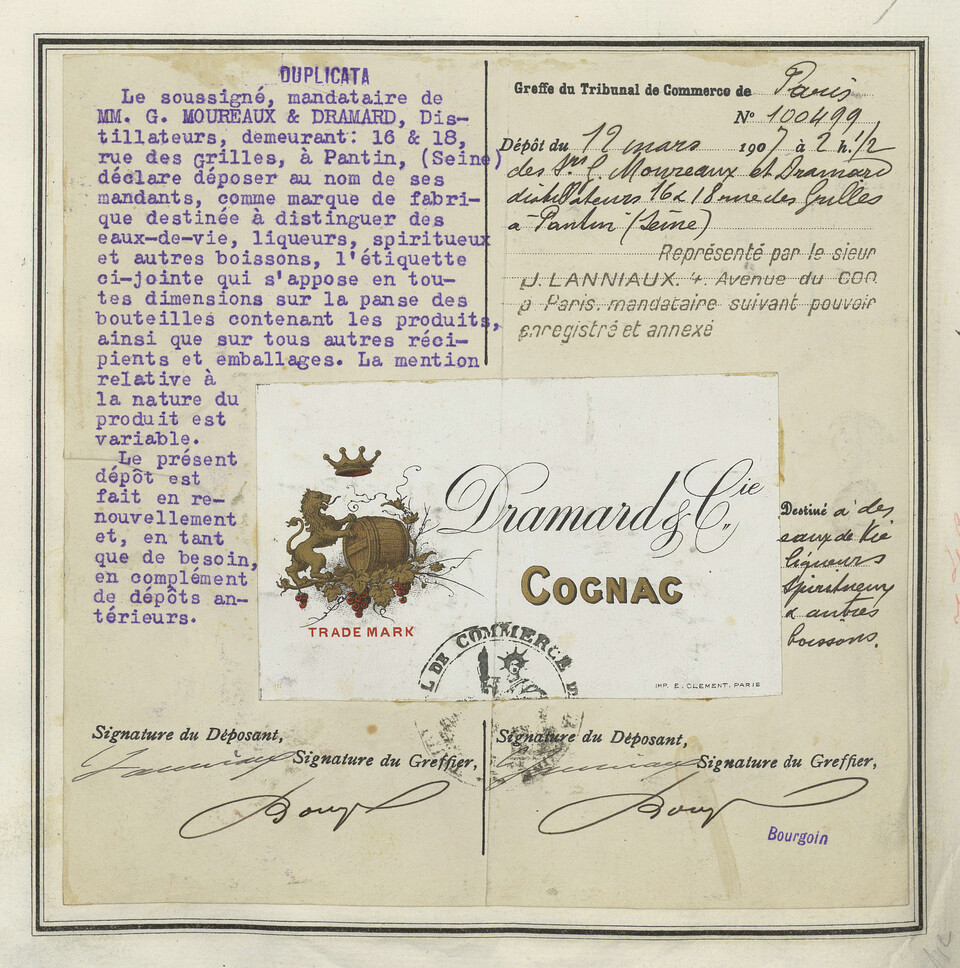 DUPLICATA
Le soussigné, mandataire de
MM. G. MOUREAUX & DRAMARD, Dis-
tillateurs, demeurant: 16 & 18,
rue des Grilles, à Pantin, (Seine)
déclare déposer au nom de ses
mandants, comme marque de fabri-
que destinée à distinguer des
eaux-de-vie, liqueurs, spiritueux
et autres boissons, l'étiquette
ci-jointe qui s'appose en tou-
tes dimensions sur la panse des
bouteilles contenant les produits,
ainsi que sur tous autres réci-
pients et emballages. La mention
relative à
la nature du
produit est
variable.
Le présent
dépôt est
fait en re-
nouvellement
et, en tant
que de besoin,
en complément
de dépôts an-
térieurs.
Greffe du Tribunal de Commerce de Paris
N° 100499
Dépôt du 12 mars 1907 à 2 h. 1/2
des Srs G. Moureaux et Dramard
distillateurs 16 & 18 rue des Grilles
à Pantin (Seine)
Représenté par le sieur
J. LANNIAUX. 4. Avenue du COQ
à Paris. mandataire suivant pouvoir
enregistré et annexé
Dramard & Cie
COGNAC
TRADE MARK
IMP. E. CLEMENT. PARIS
Destiné à des
eaux de vie
liqueurs
spiritueux
& autres
boissons.
L DE COMMERCE D
Signature du Déposant,
Lanniaux
Signature du Greffier,
Signature du Déposant,
Lanniaux
Signature du Greffier,
Bourgoin